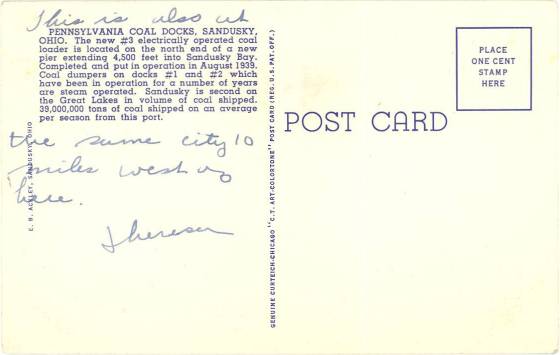 This is also at
PENNSYLVANIA COAL DOCKS, SANDUSKY,
OHIO. The new #3 electrically operated coal
loader is located on the north end of a new
pier extending 4,500 feet into Sandusky Bay.
Completed and put in operation in August 1939.
Coal dumpers on docks #1 and #2 which
have been in operation for a number of years
are steam operated. Sandusky is second on
the Great Lakes in volume of coal shipped.
39,000,000 tons of coal shipped on an average
per season from this port.
the same city 10
miles west of
here.
Theresa
E. B. ACKLEY, SANDUSKY, OHIO
GENUINE CURTEICH-CHICAGO "C.T. ART-COLORTONE" POST CARD (REG. U.S. PAT. OFF.)
POST CARD
PLACE
ONE CENT
STAMP
HERE